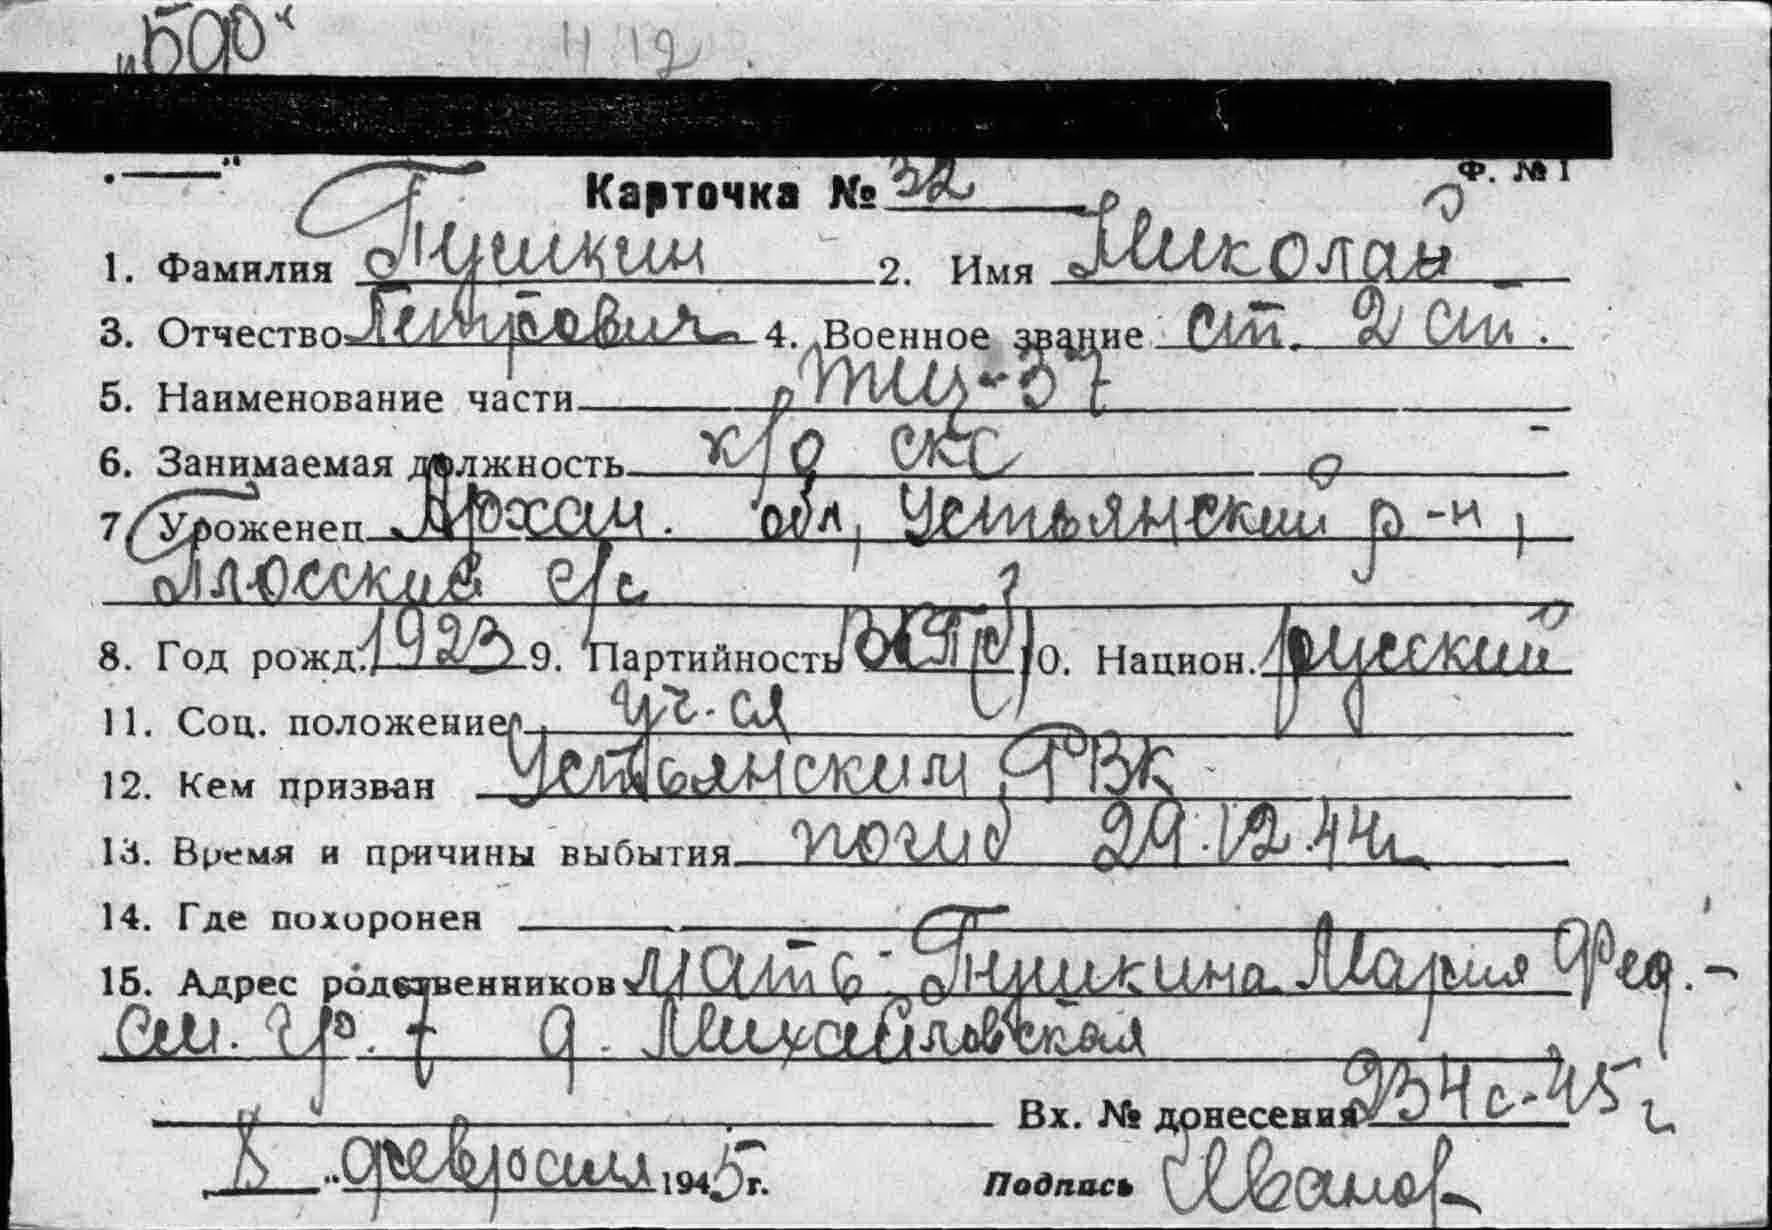 „БФ“
Н 12
Ф. № 1
Карточка № 32
1. Фамилия Пушкин 2. Имя Николай
3. Отчество Петрович 4. Военное звание ст. 2 ст.
5. Наименование части ТЩ-37
6. Занимаемая должность к/о СКС
7 Уроженец Архан. обл, Устьянский р-н,
Плосский с/с
8. Год рожд. 1923 9. Партийность ВКП(б) 10. Национ. русский
11. Соц. положение уч-ся
12. Кем призван Устьянским РВК
13. Время и причины выбытия погиб 29.12.44г
14. Где похоронен
15. Адрес родственников мать - Пушкина Мария Фед. -
см. гр. 7 д. Михайловская
Вх. № донесения 234с-45г
8 „ февраля 1945 г. Подпись Иванов